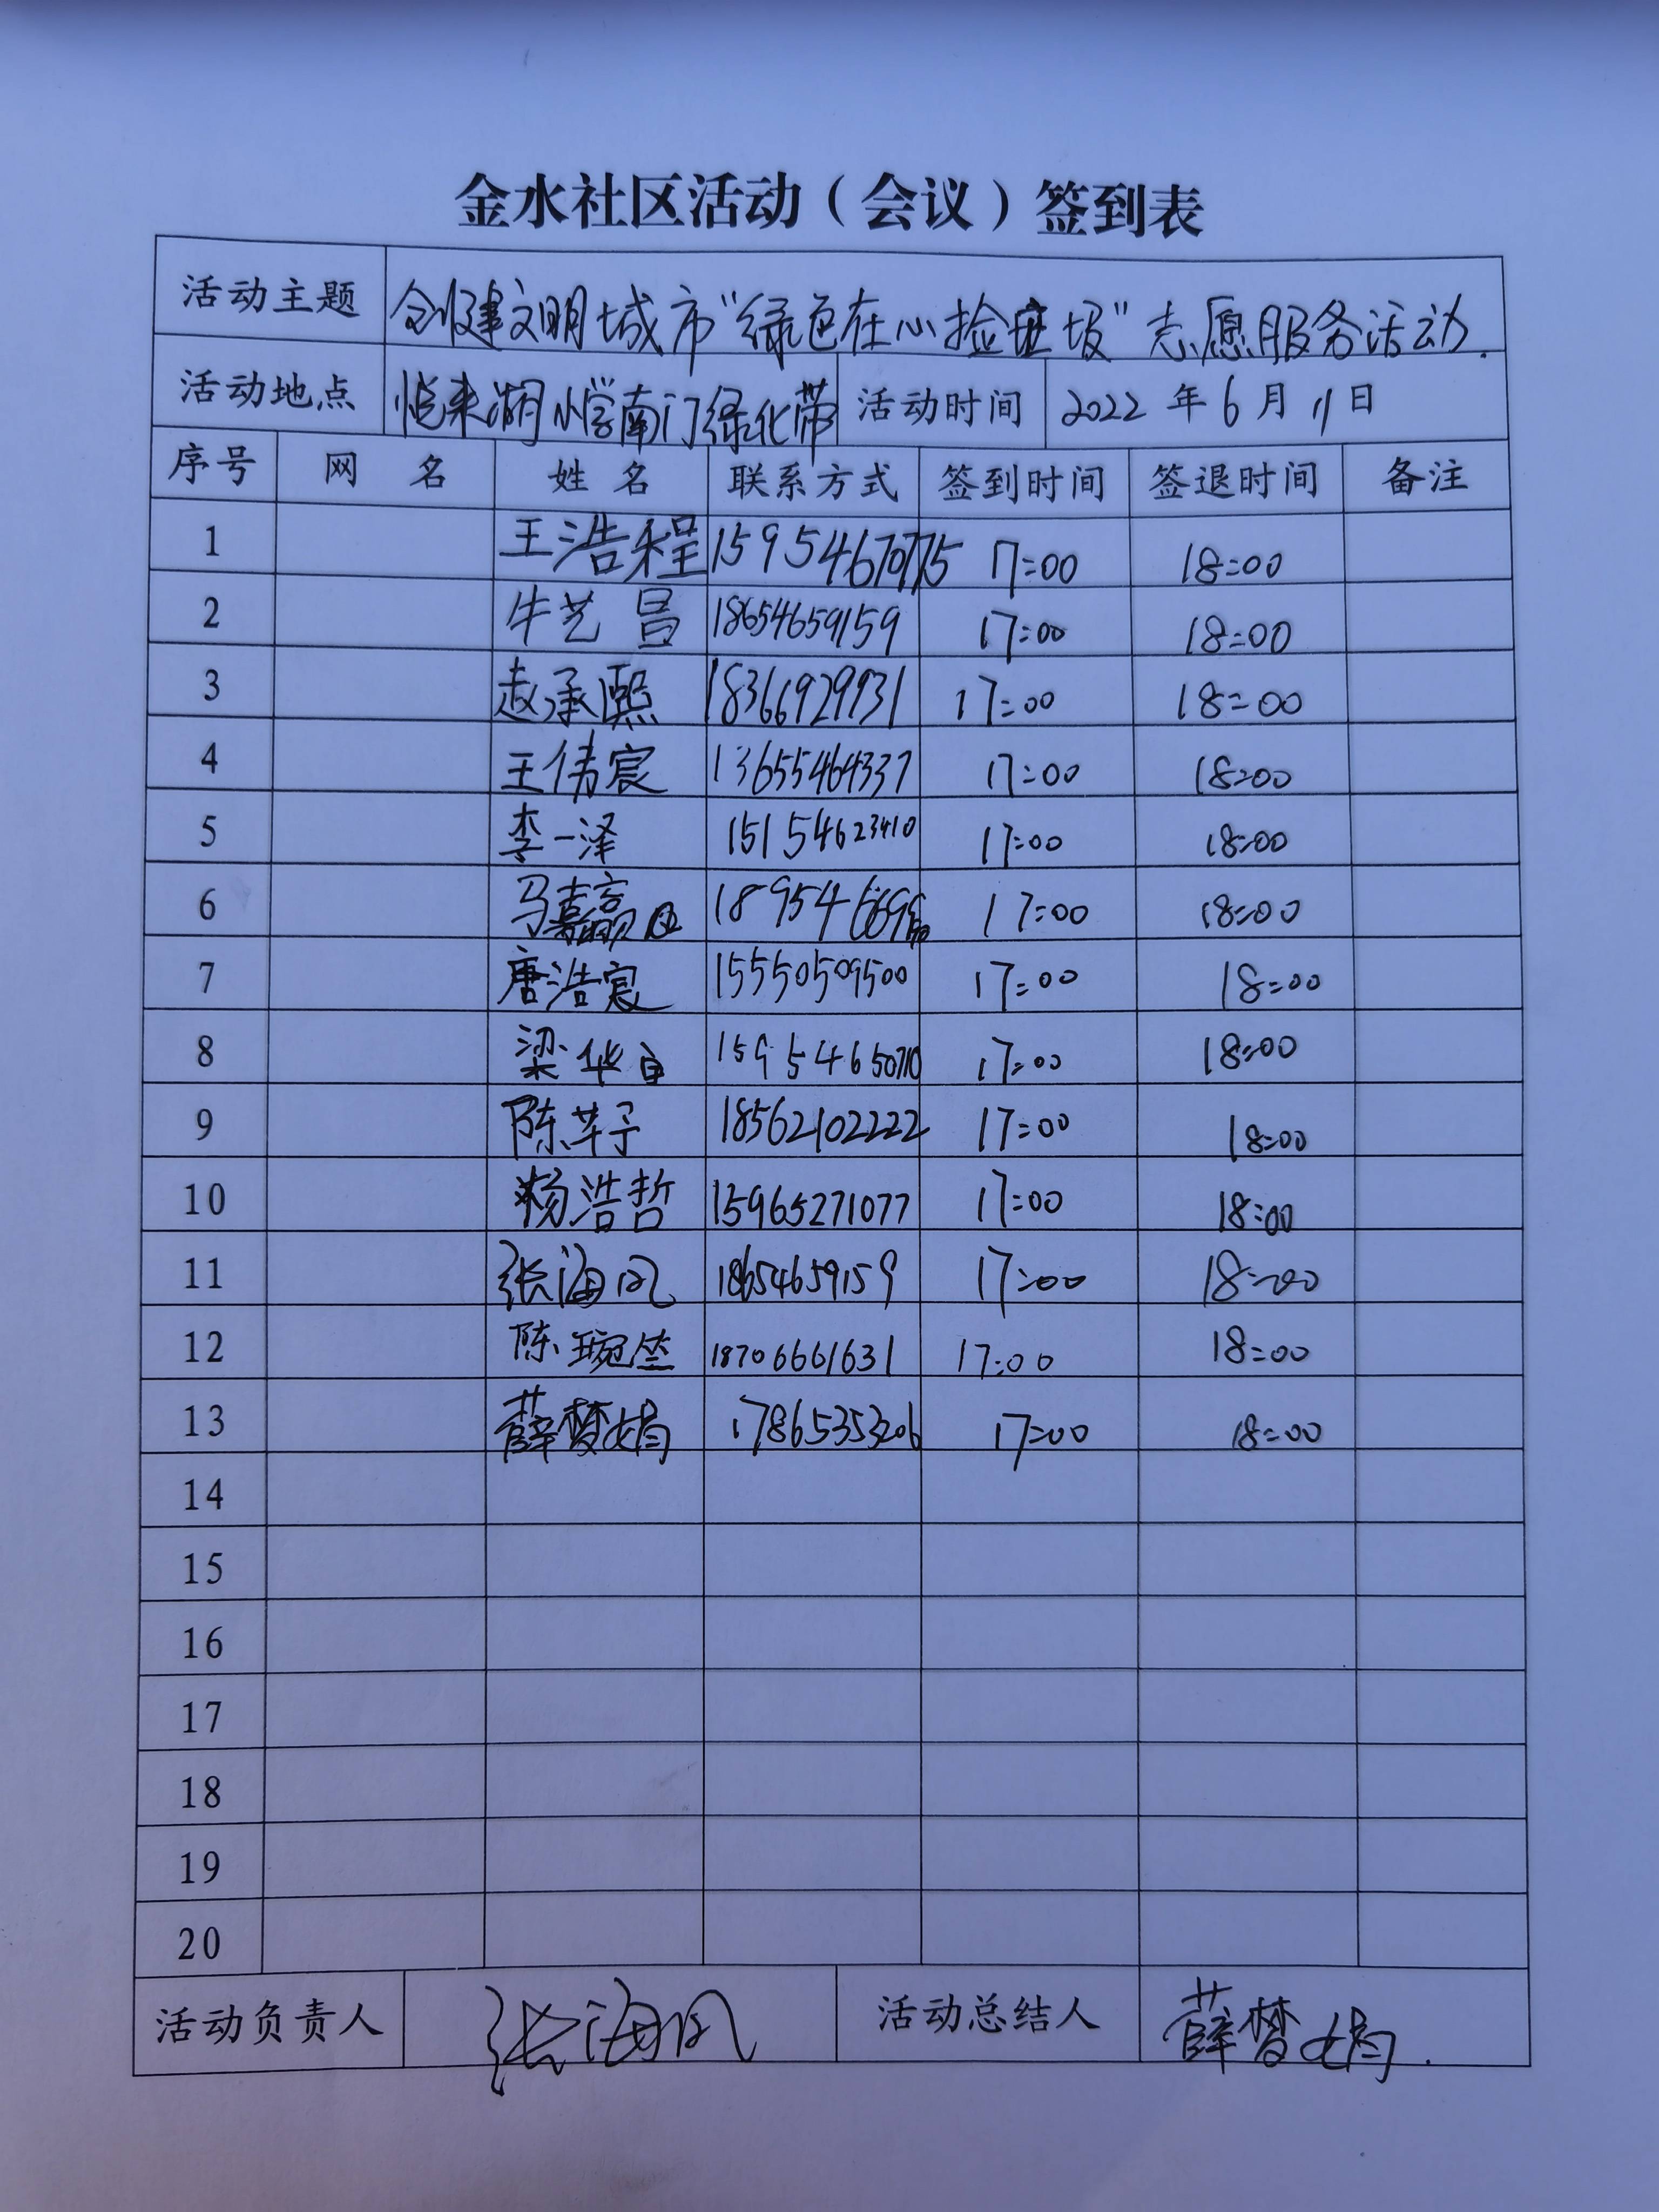 金水社区活动（会议）签到表
活动主题 创建文明城市“绿色在心捡垃圾”志愿服务活动.
活动地点 悦来湖小学南门绿化带 活动时间 2022 年 6 月 11 日
序号 网 名 姓 名 联系方式 签到时间 签退时间 备注
1 王浩程 15954670775 17:00 18:00
2 牛艺 18654659159 17:00 18:00
3 赵承熙 18366929931 17:00 18:00
4 王伟宸 13655464337 17:00 18:00
5 李一泽 15154623410 17:00 18:00
6 马嘉 17:00 18:00
7 唐浩宸 15550509500 17:00 18:00
8 梁华 15954650710 17:00 18:00
9 陈芊子 18562102222 17:00 18:00
10 杨浩哲 15965271077 17:00 18:00
11 张海风 18654659159 17:00 18:00
12 陈琬竺 18706661631 17:00 18:00
13 薛梦娟 17865353206 17:00 18:00
14
15
16
17
18
19
20
活动负责人 张海风 活动总结人 薛梦娟.